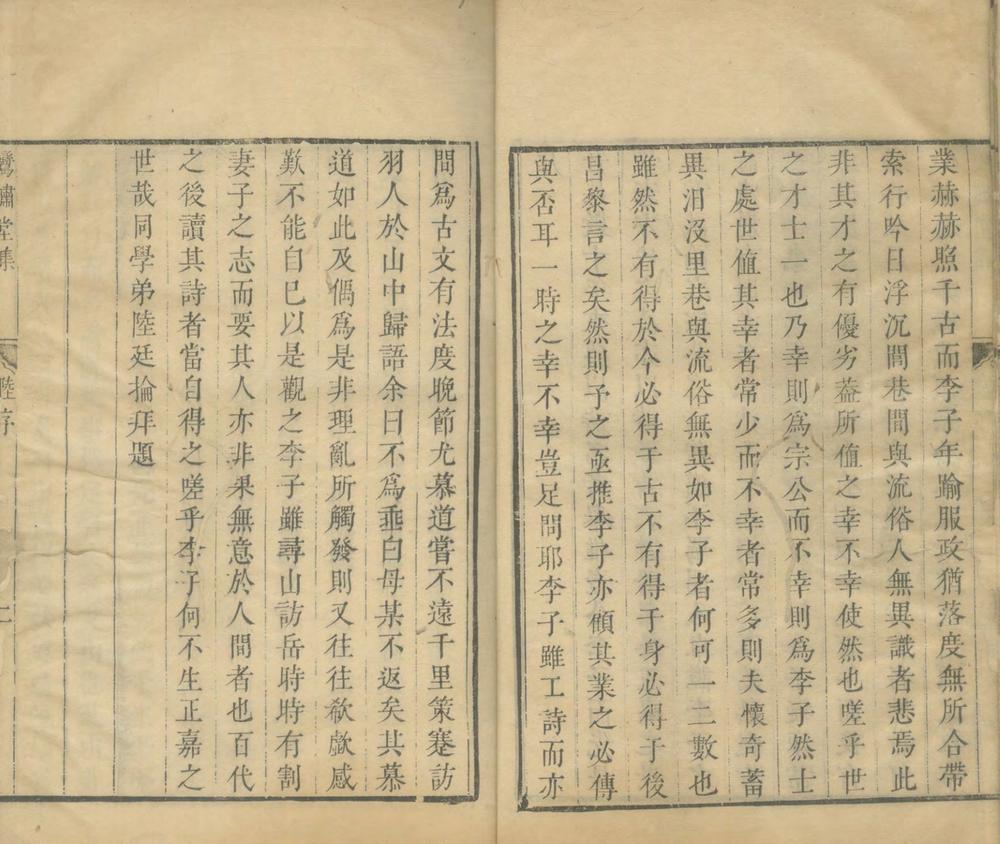 業赫赫照千古而李子年踰服政猶落度無所合帶
索行吟日浮沉閭巷間與流俗人無異識者悲焉此
非其才之有優劣葢所值之幸不幸使然也嗟乎世
之才士一也乃幸則爲宗公而不幸則爲李子然士
之處世值其幸者常少而不幸者常多則夫懷奇蓄
異汨没里巷與流俗無異如李子者何可一二數也
雖然不有得於今必得于古不有得于身必得于後
昌黎言之矣然則予之亟推李子亦傾其業之必傳
與否耳一時之幸不幸豈足問耶李子雖工詩而亦
間爲古文有法度晚節尤慕道嘗不遠千里策蹇訪
羽人於山中歸語余曰不爲垂白母某不返矣其慕
道如此及偶爲是非理亂所觸發則又往往欷歔感
歎不能自已以是觀之李子雖尋山訪岳時時有割
妻子之志而要其人亦非果無意於人間者也百代
之後讀其詩者當自得之嗟乎李子何不生正嘉之
世哉同學弟陸廷掄拜題
嘯堂集
陸序
二